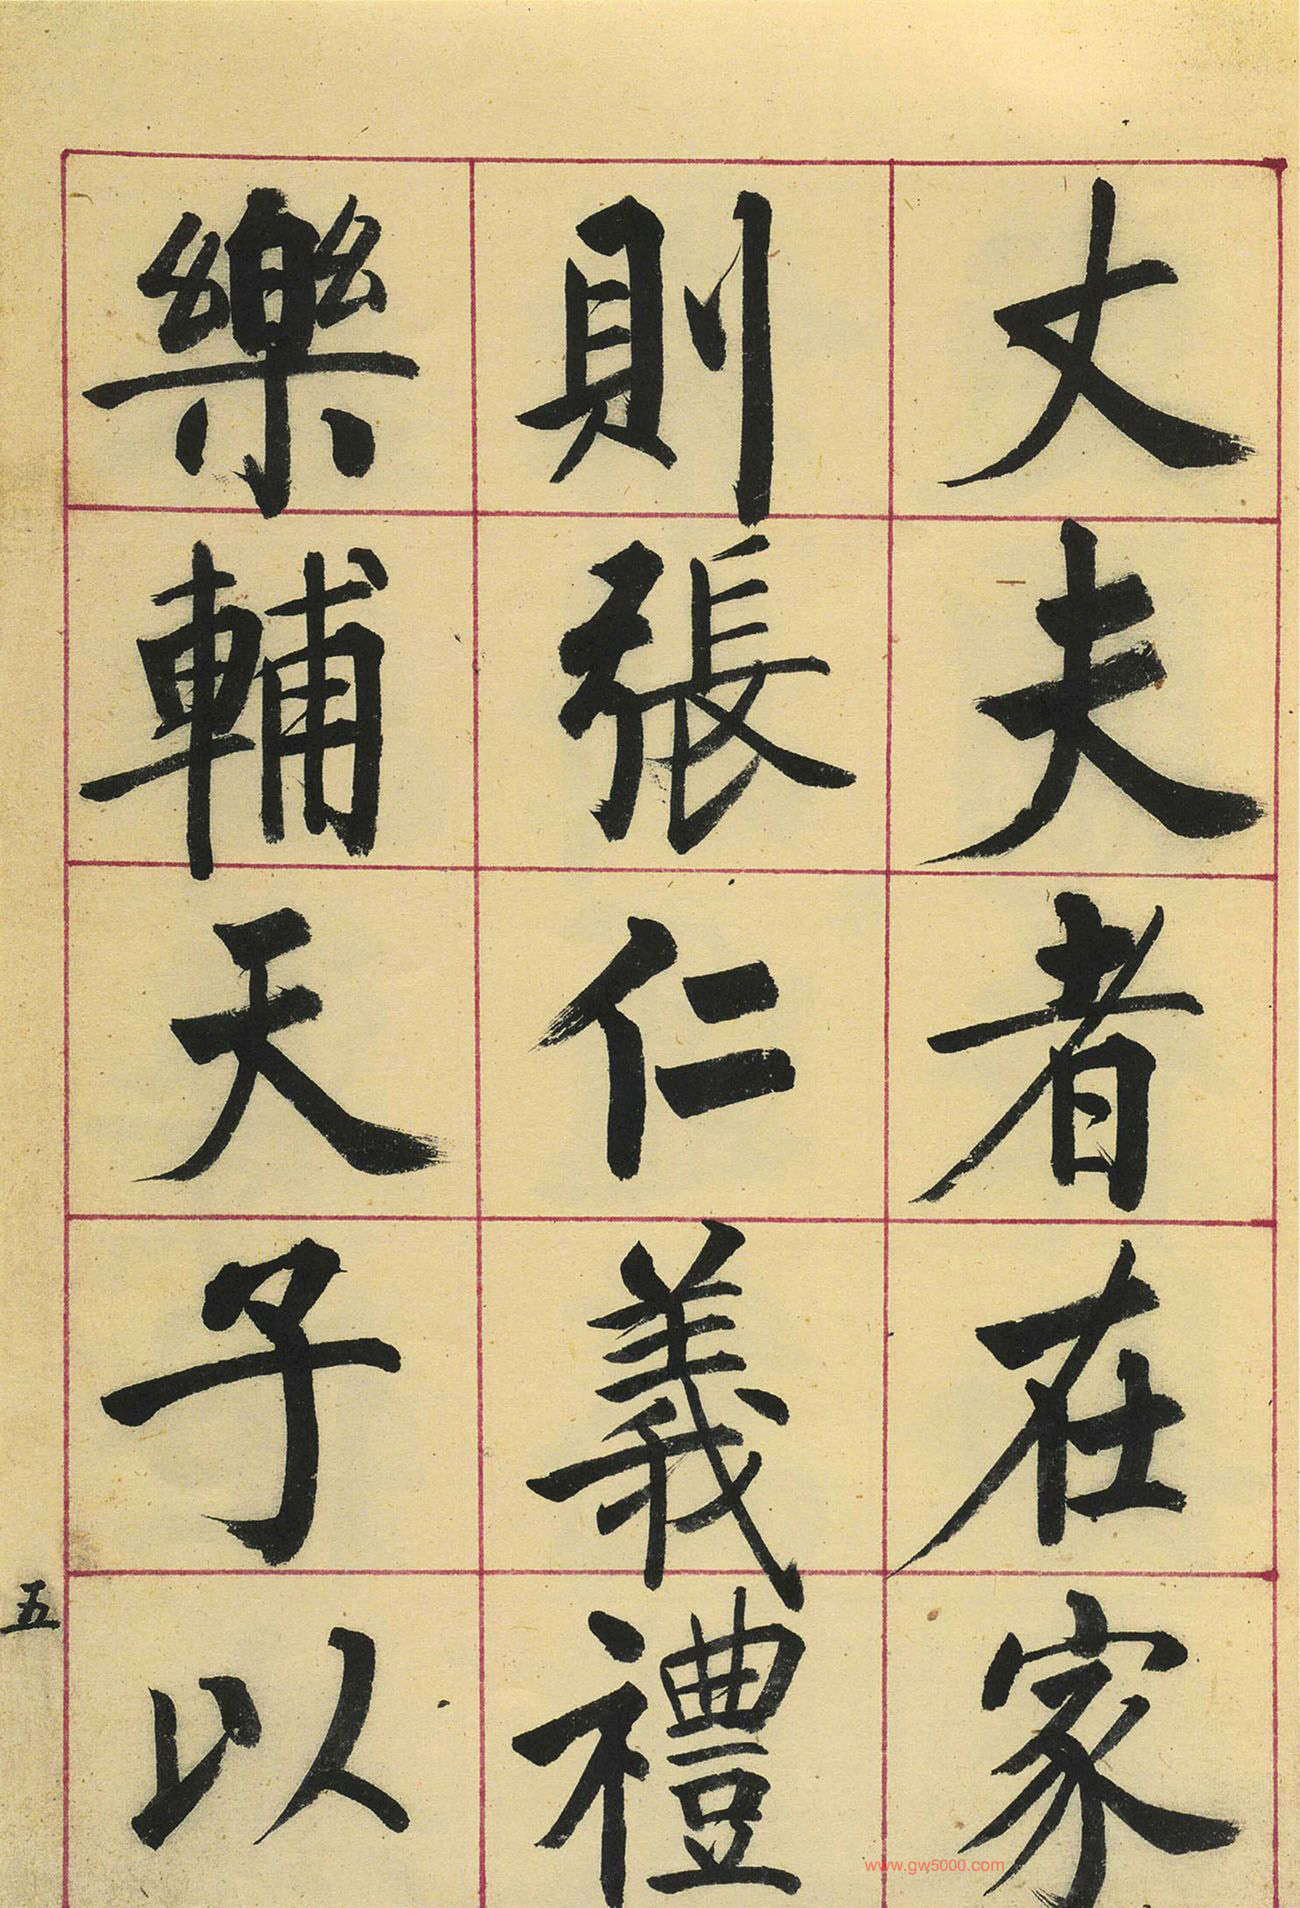 丈夫者在家
則張仁義禮
樂輔天子以
五
www.gw5000.com